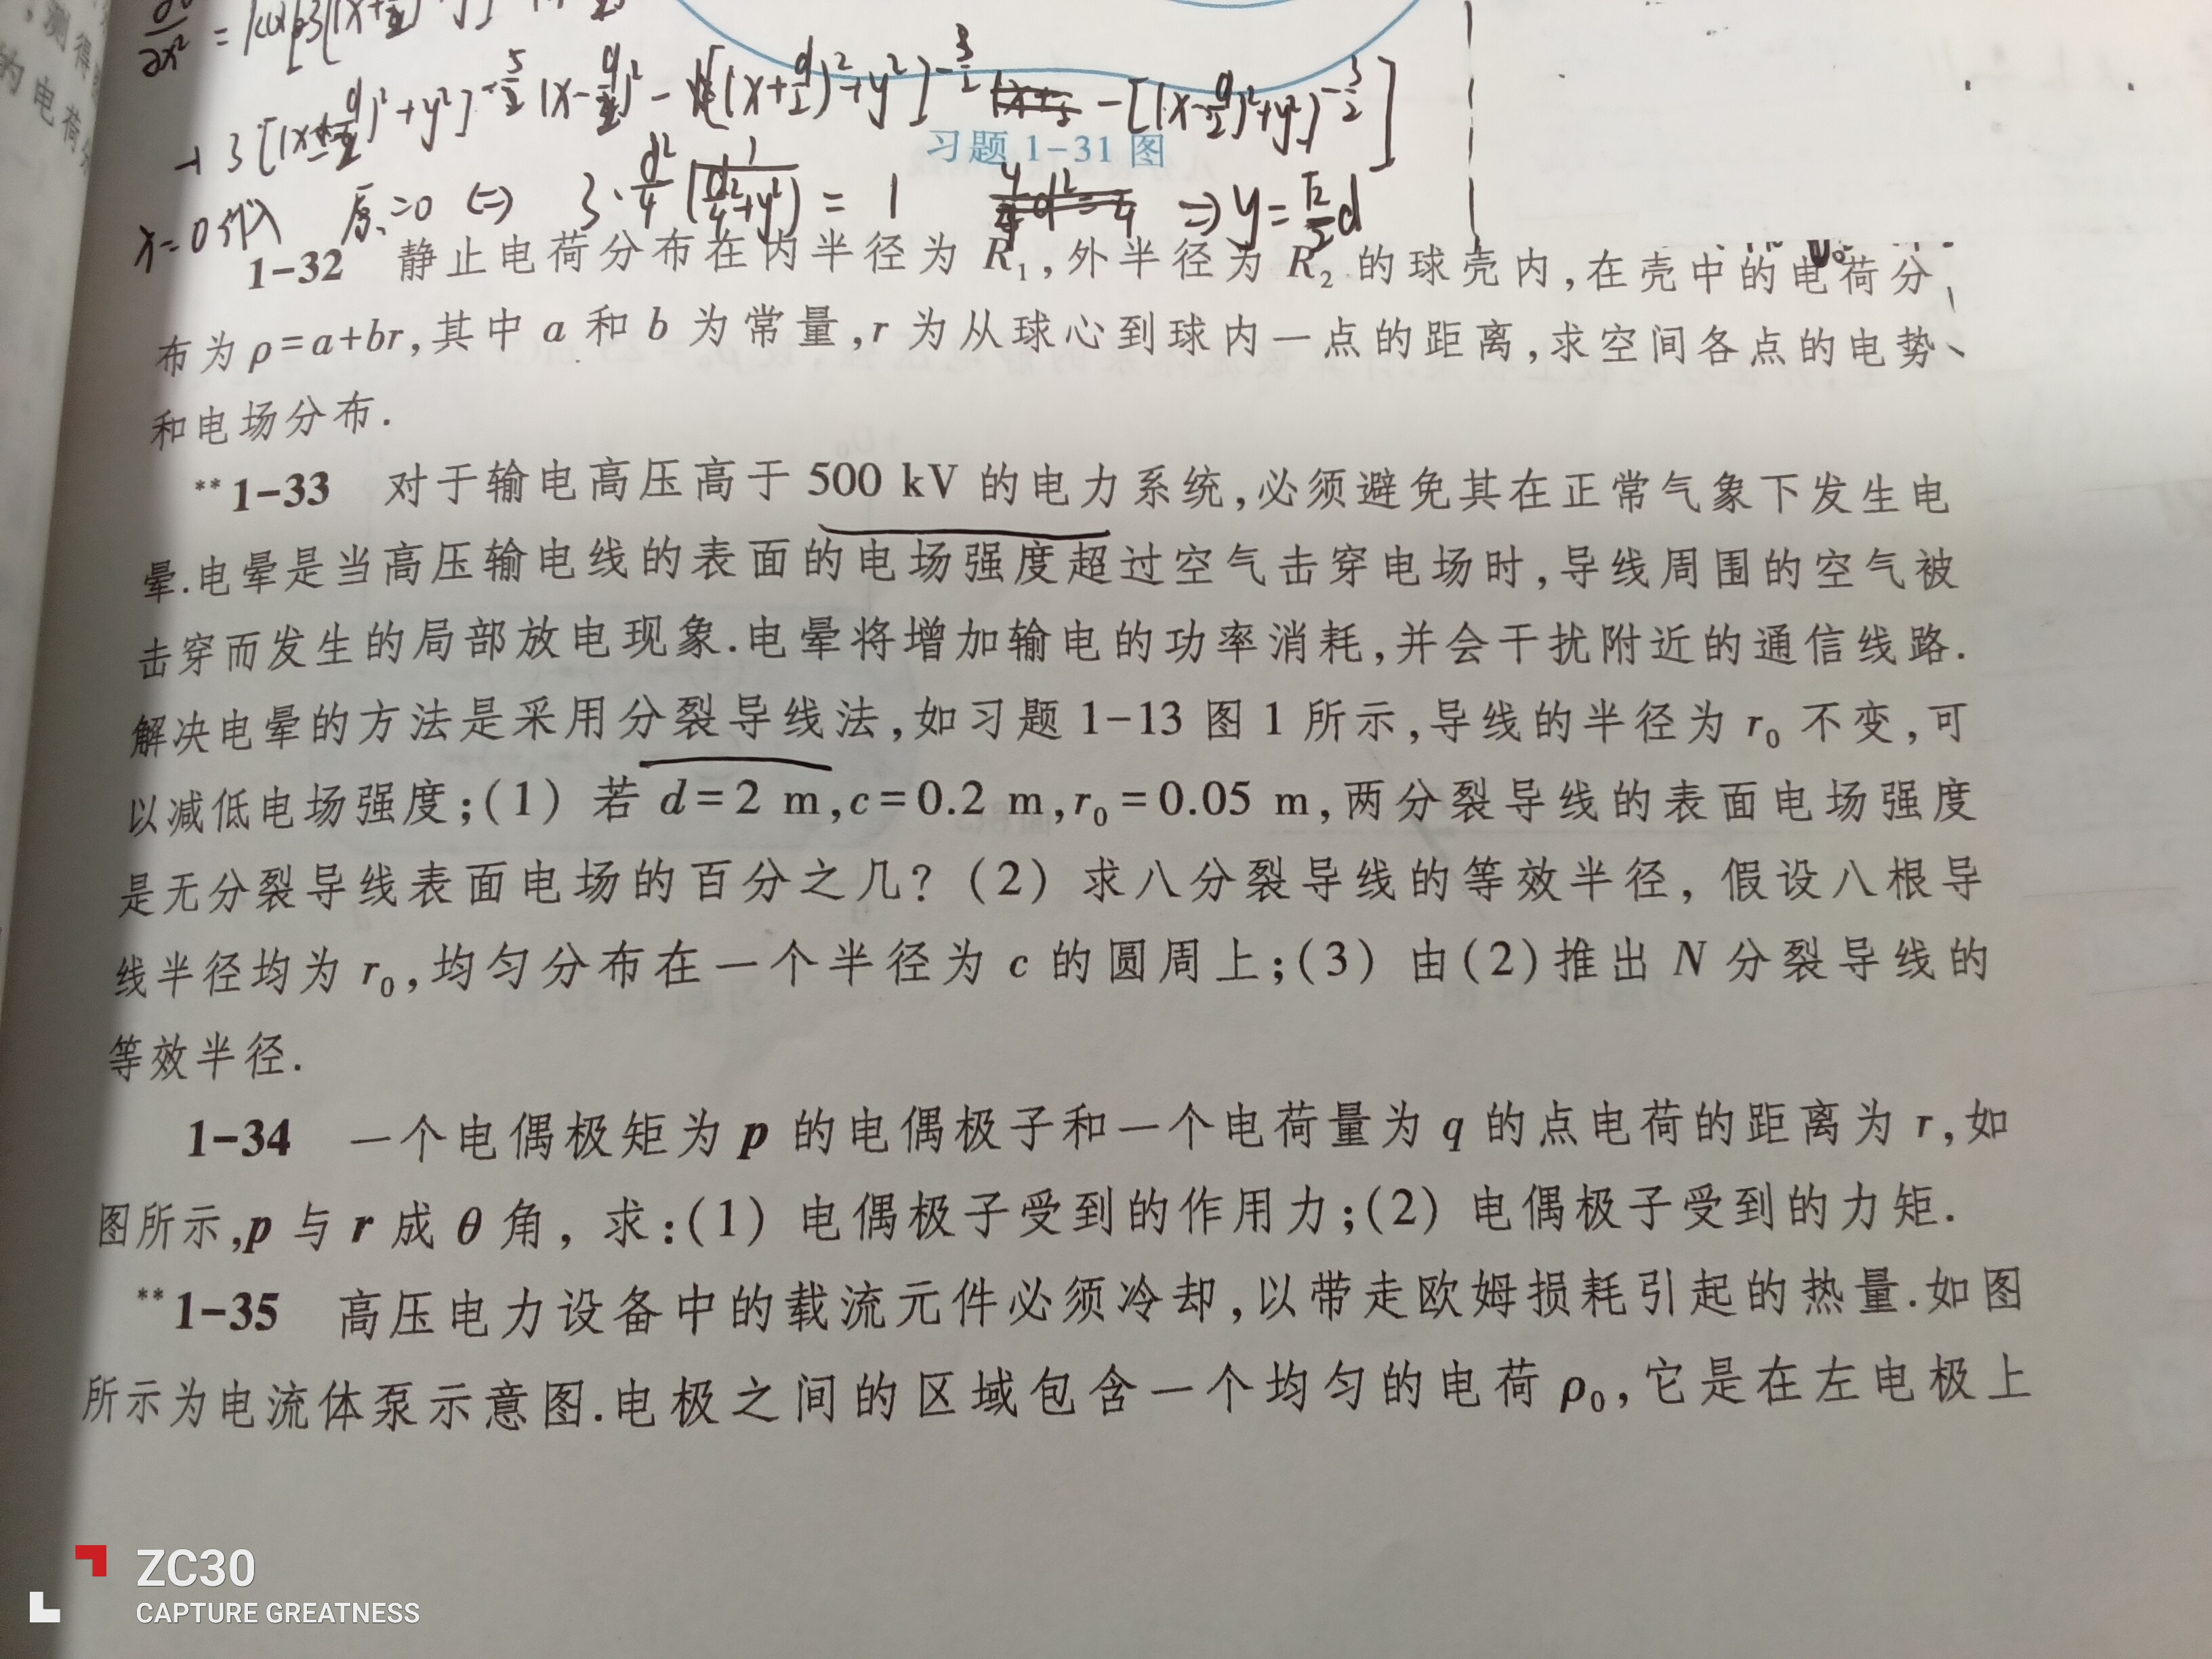 测得
的电荷分
习题 1-31 图
x=0代入 原=0 ⇔ 3·d²/4 1/(d²/4+y²) = 1 ⇒ y=√2/2 d
1-32 静止电荷分布在内半径为 R₁,外半径为 R₂ 的球壳内,在壳中的电荷分
布为 ρ=a+br,其中 a 和 b 为常量,r 为从球心到球内一点的距离,求空间各点的电势
和电场分布.
**1-33 对于输电高压高于 500 kV 的电力系统,必须避免其在正常气象下发生电
晕.电晕是当高压输电线的表面的电场强度超过空气击穿电场时,导线周围的空气被
击穿而发生的局部放电现象.电晕将增加输电的功率消耗,并会干扰附近的通信线路.
解决电晕的方法是采用分裂导线法,如习题 1-13 图 1 所示,导线的半径为 r₀ 不变,可
以减低电场强度;(1) 若 d=2 m,c=0.2 m,r₀=0.05 m,两分裂导线的表面电场强度
是无分裂导线表面电场的百分之几? (2) 求八分裂导线的等效半径, 假设八根导
线半径均为 r₀,均匀分布在一个半径为 c 的圆周上;(3) 由(2)推出 N 分裂导线的
等效半径.
1-34 一个电偶极矩为 p 的电偶极子和一个电荷量为 q 的点电荷的距离为 r,如
图所示,p 与 r 成 θ 角, 求:(1) 电偶极子受到的作用力;(2) 电偶极子受到的力矩.
**1-35 高压电力设备中的载流元件必须冷却,以带走欧姆损耗引起的热量.如图
所示为电流体泵示意图.电极之间的区域包含一个均匀的电荷 ρ₀,它是在左电极上
ZC30
CAPTURE GREATNESS